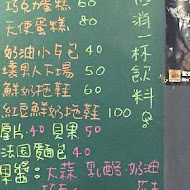 巧克力蛋糕 60
天使蛋糕 60
奶油小5包 40
壞男人下場 50
鮮奶拖鞋 60
紅豆鮮奶拖鞋 100
片 40 貝果 50
法國麵包 40
果醬：大蒜 乳酪 奶油
消一杯飲料。